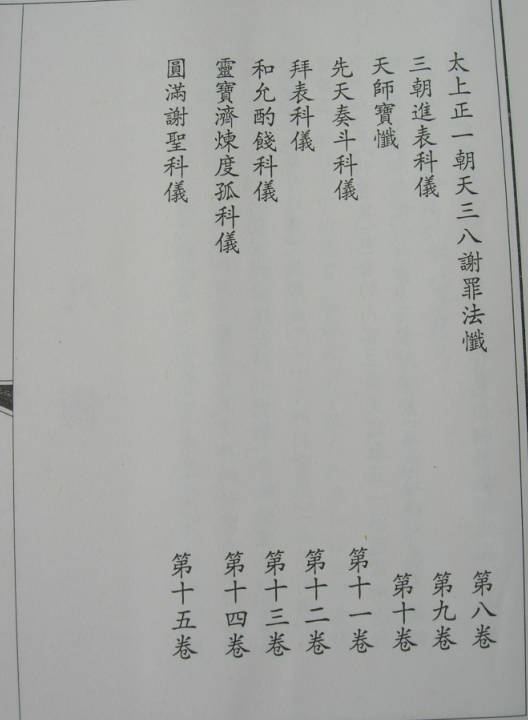 太上正一朝天三八謝罪法懺 第八卷
三朝進表科儀 第九卷
天師寶懺 第十卷
先天奏斗科儀 第十一卷
拜表科儀 第十二卷
和允酌餞科儀 第十三卷
靈寶濟煉度孤科儀 第十四卷
圓滿謝聖科儀 第十五卷